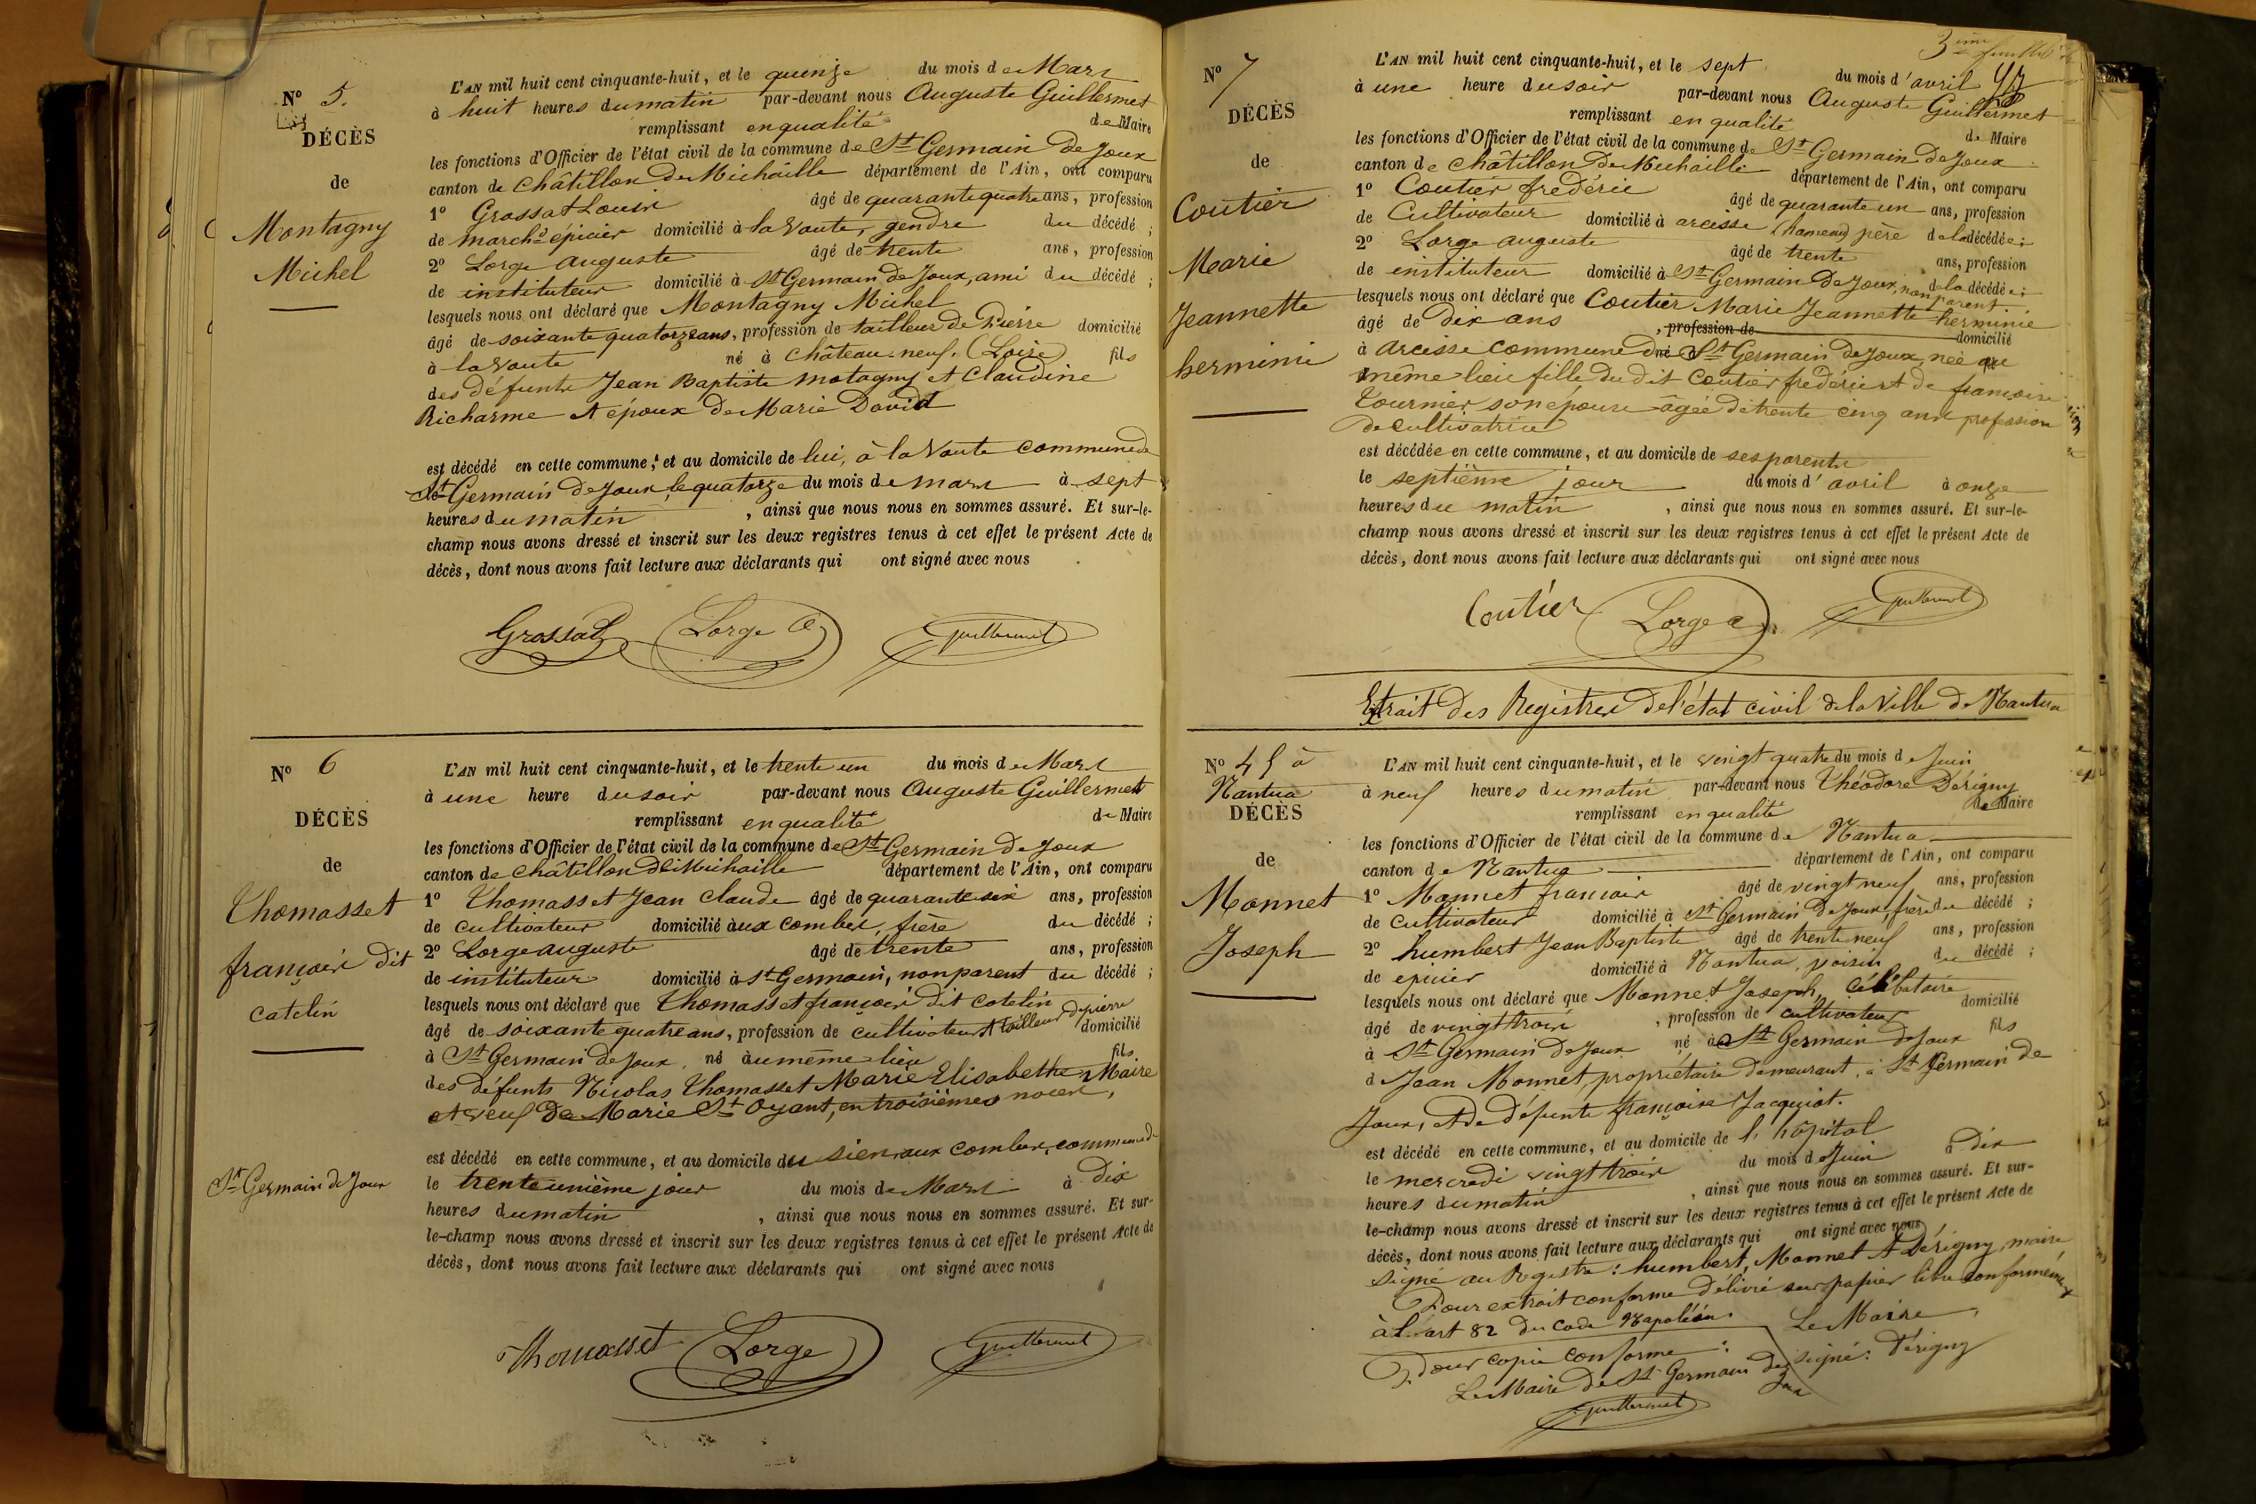 N° 5.
DÉCÈS
de
Montagny
Michel
L'AN mil huit cent cinquante-huit, et le quinze du mois de Mars
à huit heures du matin par-devant nous Auguste Guillermet
remplissant en qualité de Maire
les fonctions d'Officier de l'état civil de la commune de St Germain de Joux
canton de Châtillon de Michaille département de l'Ain, ont comparu
1° Grossat Louis âgé de quarante quatre ans, profession
de marchd épicier domicilié à la Voute, gendre du décédé ;
2° Lorge auguste âgé de trente ans, profession
de instituteur domicilié à St Germain de Joux, ami du décédé ;
lesquels nous ont déclaré que Montagny Michel
âgé de soixante quatorze ans, profession de tailleur de Pierre domicilié
à la Voute né à Château-neuf. (Loire) fils
des défunts Jean Baptiste Motagny et Claudine
Richarme et époux de Marie David
est décédé en cette commune, et au domicile de lui, à la Voute commune de
St Germain de Joux, le quatorze du mois de mars à sept
heures du matin , ainsi que nous nous en sommes assuré. Et sur-le-
champ nous avons dressé et inscrit sur les deux registres tenus à cet effet le présent Acte de
décès, dont nous avons fait lecture aux déclarants qui ont signé avec nous
Grossat Lorge a Guillermet
N° 6
DÉCÈS
de
Thomasset
françois dit
catelin
St Germain de Joux
L'AN mil huit cent cinquante-huit, et le trente un du mois de Mars
à une heure du soir par-devant nous Auguste Guillermet
remplissant en qualité de Maire
les fonctions d'Officier de l'état civil de la commune de St Germain de Joux
canton de Châtillon de Michaille département de l'Ain, ont comparu
1° Thomasset Jean Claude âgé de quarante six ans, profession
de cultivateur domicilié aux combes, frère du décédé ;
2° Lorge auguste âgé de trente ans, profession
de instituteur domicilié à St Germain, non parent du décédé ;
lesquels nous ont déclaré que Thomasset françois dit catelin
âgé de soixante quatre ans, profession de cultivateur et tailleur de pierre domicilié
à St Germain de Joux né au même lieu fils
des défunts Nicolas Thomasset Marie Elisabethe Maire
et veuf de Marie St Oyant, en troisièmes noces,
est décédé en cette commune, et au domicile du sien, aux combes, commune de
le trente unième jour du mois de Mars à dix
heures du matin , ainsi que nous nous en sommes assuré. Et sur-
le-champ nous avons dressé et inscrit sur les deux registres tenus à cet effet le présent Acte de
décès, dont nous avons fait lecture aux déclarants qui ont signé avec nous
Thomasset Lorge Guillermet
3ème feuillet
N° 7
DÉCÈS
de
Coutier
Marie
Jeannette
herminie
L'AN mil huit cent cinquante-huit, et le sept du mois d'avril
à une heure du soir par-devant nous Auguste Guillermet
remplissant en qualité de Maire
les fonctions d'Officier de l'état civil de la commune de St Germain de Joux
canton de Châtillon de Michaille département de l'Ain, ont comparu
1° Coutier frédéric âgé de quarante un ans, profession
de Cultivateur domicilié à arcisse (hameau) père de la décédée ;
2° Lorge auguste âgé de trente ans, profession
de instituteur domicilié à St Germain de Joux, non parent de la décédée ;
lesquels nous ont déclaré que Coutier Marie Jeannette herminie
âgé de dix ans , profession de domicilié
à Arcisse commune de St Germain de Joux, née au
même lieu fille du dit Coutier frédéric et de françoise
Tournier son épouse âgée de trente cinq ans profession
de cultivatrice
est décédée en cette commune, et au domicile de ses parents
le septième jour du mois d'avril à onze
heures du matin , ainsi que nous nous en sommes assuré. Et sur-le-
champ nous avons dressé et inscrit sur les deux registres tenus à cet effet le présent Acte de
décès, dont nous avons fait lecture aux déclarants qui ont signé avec nous
Coutier Lorge a Guillermet
Extrait des Registres de l'état civil de la ville de Nantua
N° 45 à
Nantua
DÉCÈS
de
Monnet
Joseph
L'AN mil huit cent cinquante-huit, et le vingt quatre du mois de Juin
à neuf heures du matin par-devant nous Théodore Dérigny
remplissant en qualité de Maire
les fonctions d'Officier de l'état civil de la commune de Nantua
canton de Nantua département de l'Ain, ont comparu
1° Monnet françois âgé de vingt neuf ans, profession
de cultivateur domicilié à St Germain de Joux, frère du décédé ;
2° humbert Jean Baptiste âgé de trente neuf ans, profession
de epicier domicilié à Nantua, voisin du décédé ;
lesquels nous ont déclaré que Monnet Joseph, célibataire
âgé de vingt trois , profession de cultivateur domicilié
à St Germain de Joux né à St Germain de Joux fils
d Jean Monnet, propriétaire demeurant à St Germain de
Joux, et de défunte françoise Jacquiot.
est décédé en cette commune, et au domicile de l'hôpital
le mercredi vingt trois du mois de Juin à dix
heures du matin , ainsi que nous nous en sommes assuré. Et sur-
le-champ nous avons dressé et inscrit sur les deux registres tenus à cet effet le présent Acte de
décès, dont nous avons fait lecture aux déclarants qui ont signé avec nous
signé au Registre : humbert, Monnet et Dérigny, maire
Pour extrait conforme délivré sur papier libre conformément
à l'art 82 du Code Napoléon. Le Maire,
Pour copie conforme : signé : Dérigny
Le Maire de St Germain de Joux
Guillermet